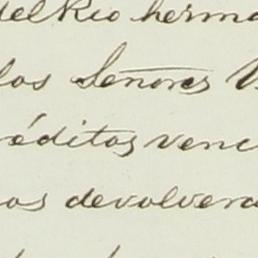 del Rio herma
los Señores V
réditos venc
os devolvera